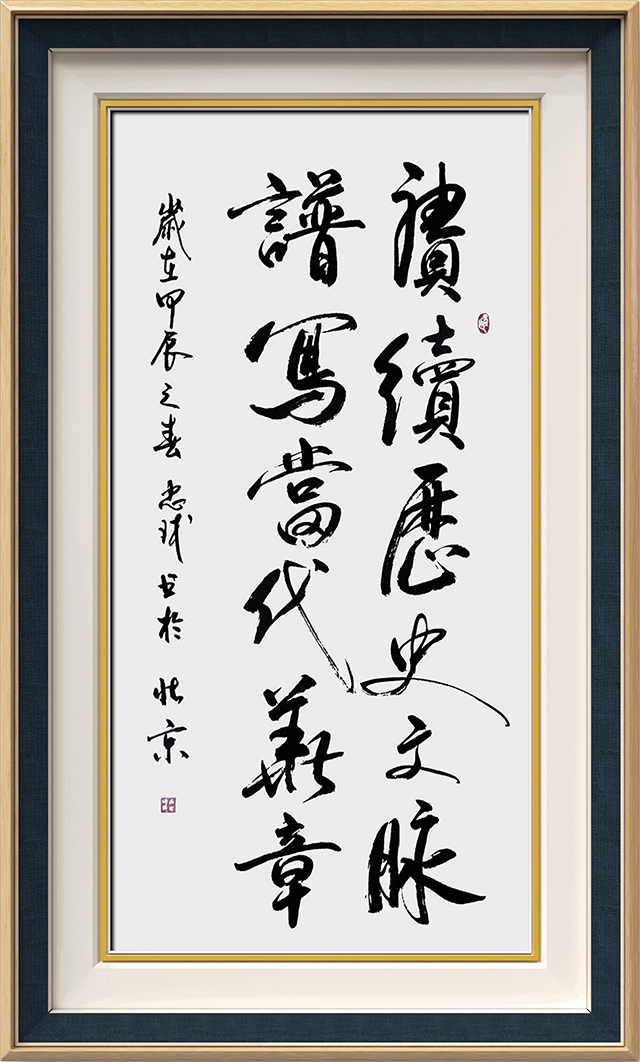 賡續歷史文脉
譜寫當代華章
歲在甲辰之春 忠 书於 北京